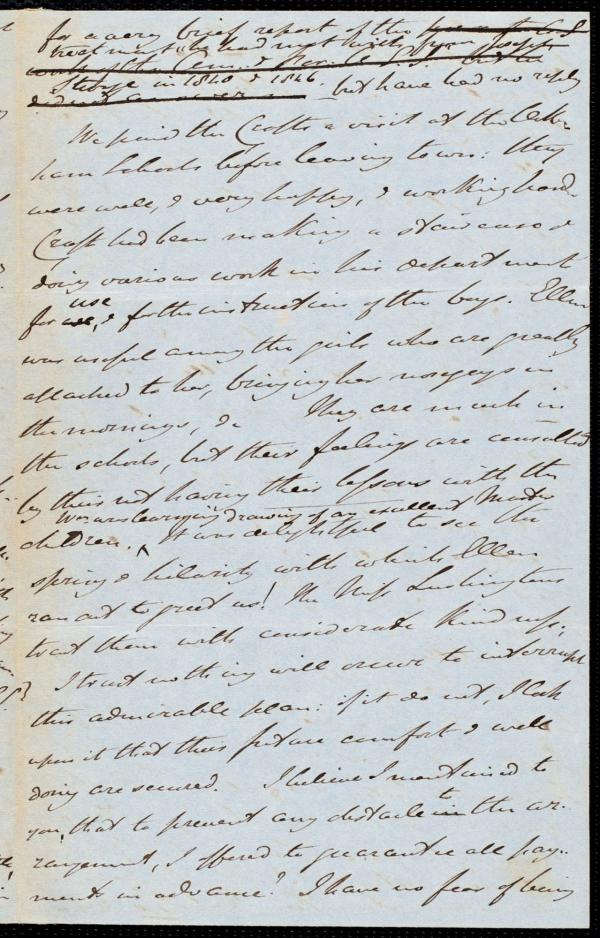 for a very brief report of the
treatment he had met with from Joseph
Sturge in 1840 & 1846. but have had no reply
We paid the Crafts a visit at the Ock-
ham Schools before leaving town: they
were well, & very happy, & working hard.
Craft had been making a staircase &
doing various work in his department
for use, & for the instruction of the boys. Ellen
was useful among the girls who are greatly
attached to her, bringing her nosegays in
the mornings, &c They are much in
the schools, but their feelings are consulted
by their not having their lessons with the
Wm was learning drawing of an excellent Master
children. ^ It was delightful to see the
spring & hilarity with which Ellen
ran out to greet us! The Miss Lushingtons
treat them with considerate kindness.
I trust nothing will occur to interrupt
this admirable plan: if it do not, I look
upon it that their future comfort & well
doing are secured. I believe I mentioned to
you, that to prevent any obstacle to the ar-
rangement, I offered to guarantee all pay-
ment in advance? I have no fear of being